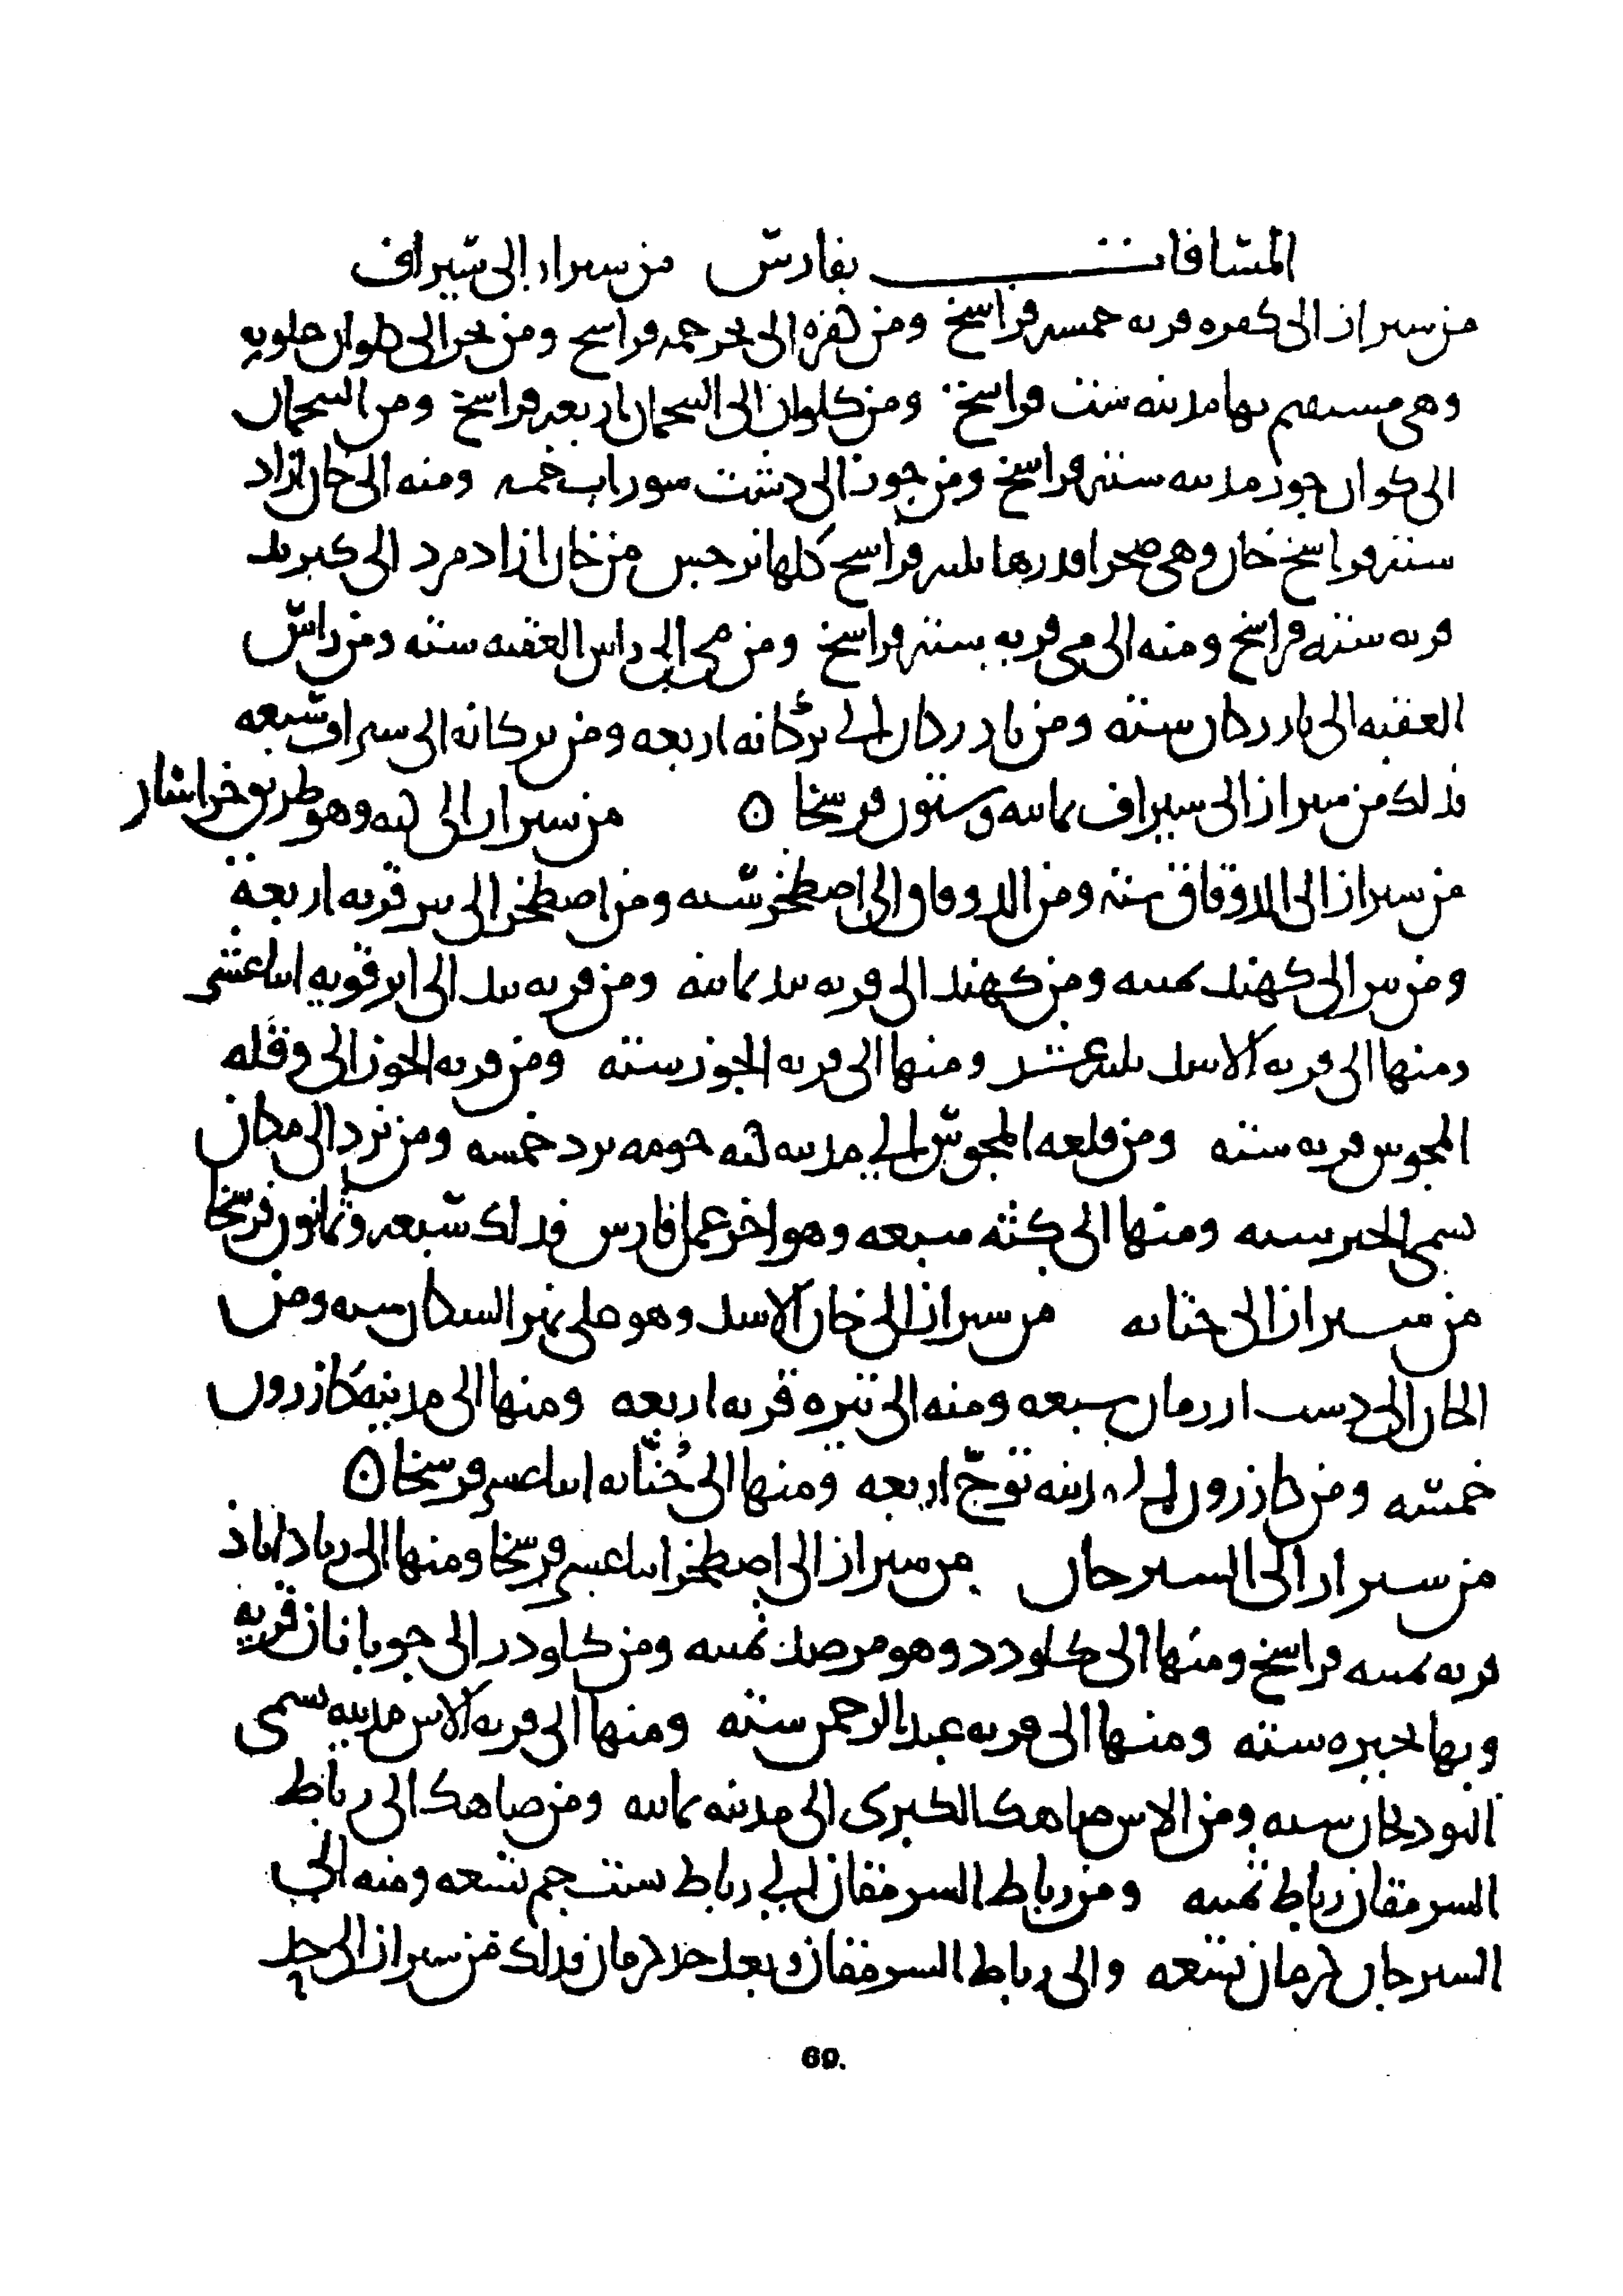 المسافات بفارس من سيراز الى سيراف
من سيراز الى كفره قريه خمسه فراسخ ومن كفره الى بحر خمسه فراسخ ومن بحر الى كلوان
وهى بها مدينه ست فراسخ ومن كلوان الى السحمان اربعه فراسخ ومن السحمان
الى كوان جور مدينه سته فراسخ ومن جور الى دشت سوراب خمسه ومنه الى خان ازاد
سته فراسخ خان وهى صحرا قدرها ثلثه فراسخ كلها نرجس من خان ازادمرد الى كيرند
قريه سته فراسخ ومنه الى مى قريه سته فراسخ ومن مى الى راس العقبه سته ومن راس
العقبه الى بادركان سته ومن بادركان الى بركانه اربعه ومن بركانه الى سيراف سبعه
فذلك من سيراز الى سيراف ثمانيه وستون فرسخا ه من سيراز الى كثه وهو طريق خراسان
من سيراز الى الدوقاق سته ومن الدوقاق الى اصطخر سته ومن اصطخر الى بير قريه اربعة
ومن بير الى كهند ثمنيه ومن كهند الى قريه بيد ثمانيه ومن قريه بيد الى ابرقويه اثنا عشر
ومنها الى قريه الاسد ثلثه عشر ومنها الى قريه الجوز سته ومن قريه الجوز الى وقلعه
المجوس قريه سته ومن قلعه المجوس الى مدينه كثه حومه يزد خمسه ومن يزد الى مكان
يسمى سته ومنها الى كثه سبعه وهو اخر عمل فارس فذلك سبعه وثمانون فرسخا
من سيراز الى جنابه من سيراز الى خان الاسد وهو على نهر السكان سته ومن
الخان الى دست ارزمان سبعه ومنه الى تيره قريه اربعه ومنها الى مدينه كازرون
خمسه ومن كازرون الى مدينه توج اربعه ومنها الى جنابه اثنا عشر فرسخا ه
من سيراز الى السيرجان من سيراز الى اصطخر اثنا عشر فرسخا ومنها الى زياداباذ
قريه ثمنيه فراسخ ومنها الى كلودر وهو مرصد ثمنيه ومن كلودر الى جوبانان قريه
وبها بحيره سته ومنها الى قريه عبد الرحمن سته ومنها الى قريه الاس مدينه تسمى
البودنجان سته ومن الاس صاهك الكبرى الى مدينه ثمانيه ومن صاهك الى رباط
السرمقان رباط ثمنيه ومن رباط السرمقان الى رباط ست خم تسعه ومنه الى
السيرجان كرمان تسعه والى رباط السرمقان وبعد حد كرمان فذلك من سيراز الى حد
69.